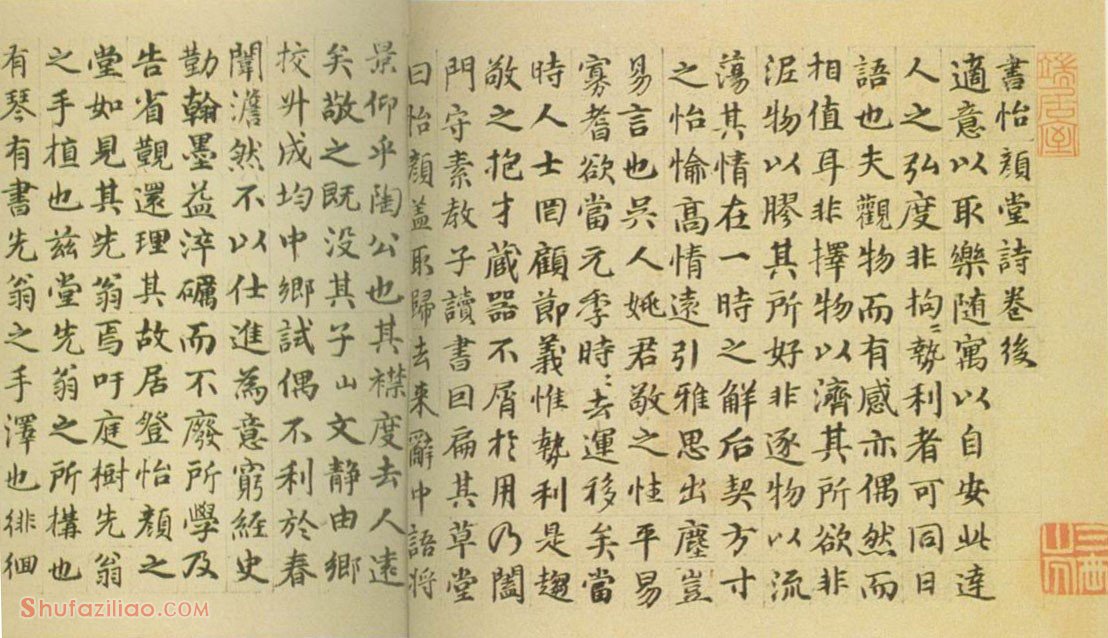 書怡顔堂詩卷後
適意以取樂隨寓以自安此達
人之弘度非拘〻勢利者可同日
語也夫觀物而有感亦偶然而
相值耳非擇物以濟其所欲非
泥物以膠其所好非逐物以流
蕩其情在一時之解后契方寸
之怡愉高情遠引雅思出塵豈
易言也吳人姚君敬之性平易
寡耆欲當元季時〻去運移矣當
時人士罔顧節義惟勢利是趨
敬之抱才蔵器不屑於用乃闔
門守素教子讀書曰扁其草堂
曰怡顔蓋取歸去来辭中語将
景仰乎陶公也其襟度去人遠
矣敬之既没其子山文静由鄉
校升成均中鄉試偶不利於春
闈澹然不以仕進為意窮經史
勤翰墨益淬礪而不廢所學及
告省覲還理其故居登怡顔之
堂如見其先翁焉吁庭樹先翁
之手植也茲堂先翁之所構也
有琴有書先翁之手澤也徘徊
Shufaziliao.COM